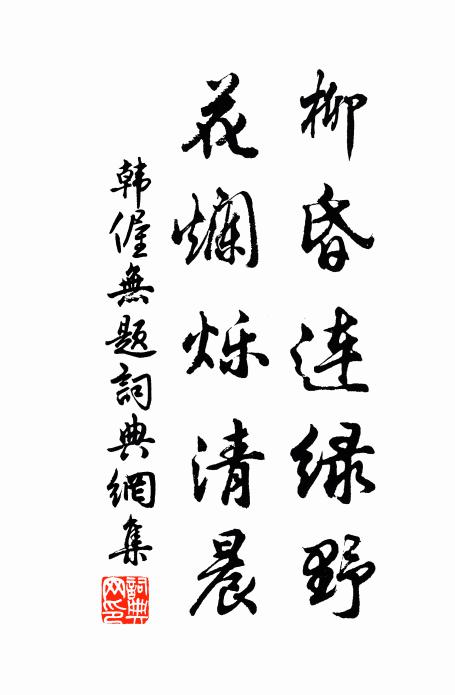 柳昏连绿野
花爛烁清晨
韩偓無题詞典網集
詞典網印